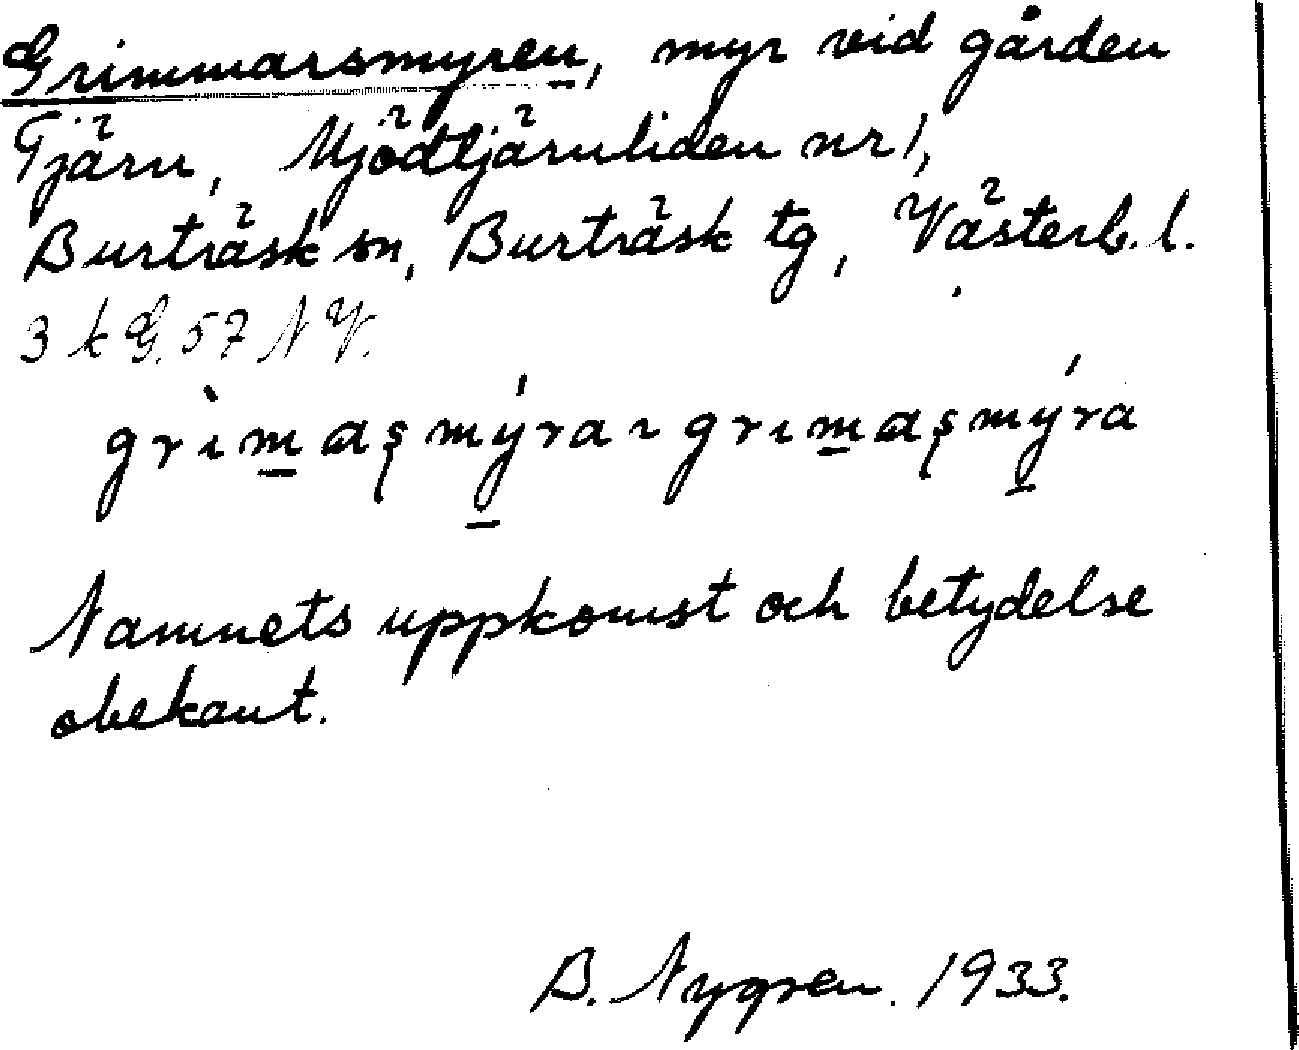 Grimmarsmyren, myr vid gården
Tjärn, Mjödtjärnliden nr 1,
Burträsk sn, Burträsk tg, Västerb. l.
3 k G. 57 N V.
grìmaʂmýra ~ grımaʂmýra
Namnets uppkomst och betydelse
obekant.
B. Nygren. 1933.